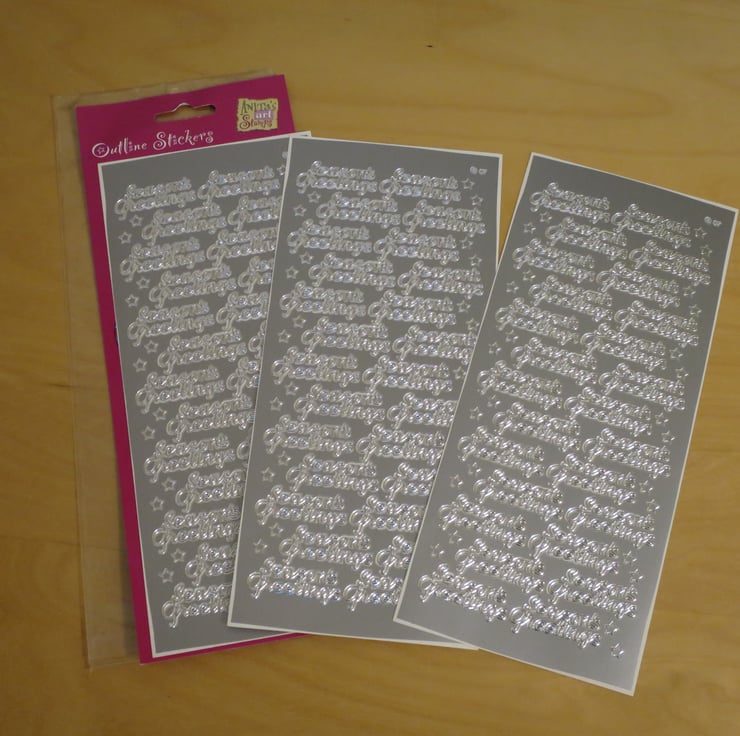 ANITA'S
art
Stamps
Outline Stickers
Season's Season's
Greetings Greetings
Season's
Greetings
Season's Season's
Greetings Greetings
Season's
Greetings
Season's
Greetings
Season's
Greetings
Season's
Greetings
Season's
Greetings
Season's
Greetings
Season's
Greetings
Season's
Greetings
Season's
Greetings
Season's
Greetings
Season's Season's
Greetings Greetings
Season's Season's
Greetings Greetings
Season's Season's
Greetings Greetings
Season's Season's
Greetings Greetings
Season's Season's
Greetings Greetings
Season's Season's
Greetings Greetings
Season's Season's
Greetings Greetings
Season's Season's
Greetings Greetings
Season's Season's
Greetings Greetings
Season's
Greetings
Season's
Greetings
Season's
Greetings
Season's
Greetings
Season's Season's
Greetings Greetings
Season's Season's
Greetings Greetings
Season's Season's
Greetings Greetings
Season's Season's
Greetings Greetings
Season's Season's
Greetings Greetings
Season's Season's
Greetings Greetings
Season's Season's
Greetings Greetings
Season's Season's
Greetings Greetings
Season's Season's
Greetings Greetings
Season's Season's
Greetings Greetings
Season's Season's
Greetings Greetings
Season's Season's
Greetings Greetings
Season's Season's
Greetings Greetings